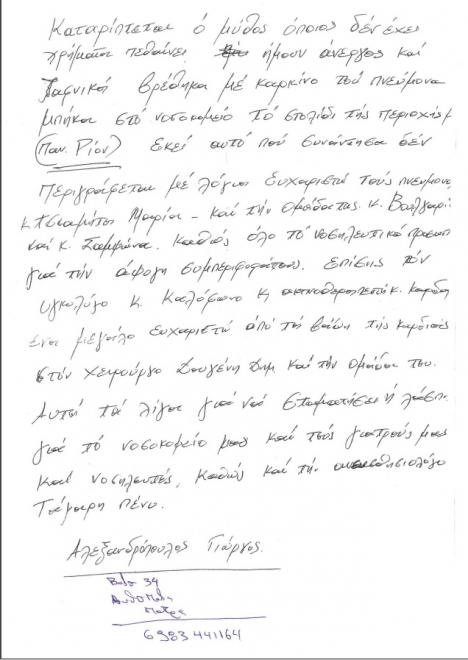 Καταρίπτεται ό μύθος όποιος δέν έχει
χρήματα πεθαίνει ήμουν άνεργος και
ξαφνικά βρέθηκα μέ καρκίνο τού πνεύμονα
μπήκα στό νοσοκομείο τό στολίδι τής περιοχής
(Παν. Ρίου) Εκεί αυτό πού συνάντησα δέν
περιγράφεται μέ λόγια ευχαριστώ τούς πνευμονο
κ. Τσιαμήτα Μαρία - καί τήν ομάδα της κ. Βαλγαρι
και κ. Σαμψώνα. Καθώς όλο τό νοσηλευτικό προσωπ
γιά τήν άψογη συμπεριφορά τους. Επίσης τόν
ογκολόγο κ. Καλόφωνο κ. Καρδαμ
ένα μεγάλο ευχαριστώ από τά βάθη τής καρδιάς
στόν χειρούργο Δουγένη Δημ καί τήν ομάδα του.
Αυτά τά λίγα γιά νά σταματήσει ή λάσπη
γιά τό νοσοκομείο μας καί τούς γιατρούς μας
καί νοσηλευτές, καθώς καί τήν αναισθησιολόγο
Τσάμαρη Πένυ.
Αλεξανδρόπουλος Γιώργος.
34
Πάτρα
6983 441164